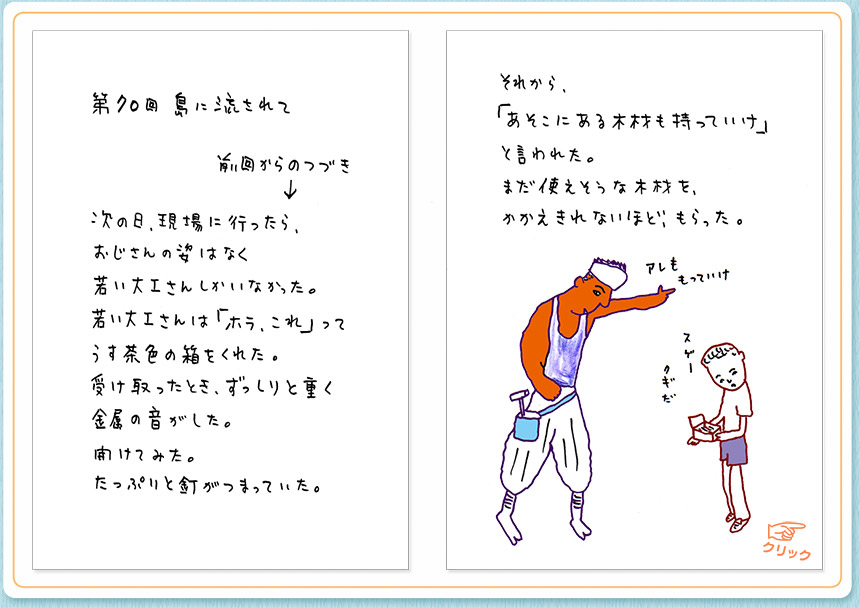 第70回 島に流されて
前回からのつづき
↓
次の日、現場に行ったら、
おじさんの姿はなく
若い大工さんしかいなかった。
若い大工さんは「ホラ、これ」って
うす茶色の箱をくれた。
受け取ったとき、ずっしりと重く
金属の音がした。
開けてみた。
たっぷりと釘がつまっていた。
それから、
「あそこにある木材も持っていけ」
と言われた。
まだ使えそうな木材を、
かかえきれないほど、もらった。
アレも
もっていけ
スゲー
クギだ
クリック